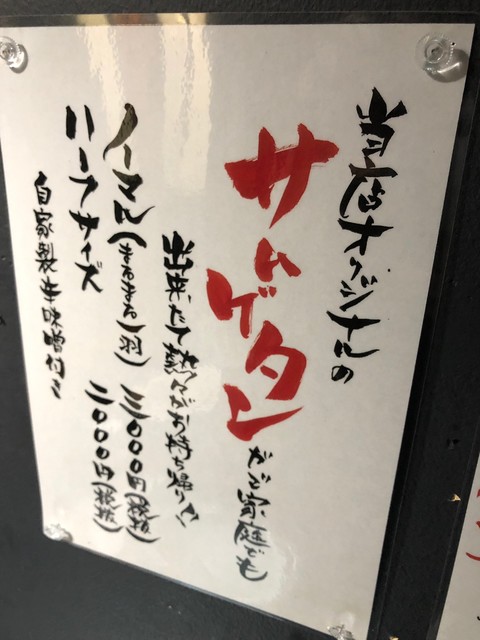 当店オリジナルの
サムゲタンがご家庭でも
出来たて熱々がお持ち帰りで
ノーマル(まるまる一羽) 三〇〇〇円(税抜)
ハーフサイズ 二〇〇〇円(税抜)
自家製辛味噌付き